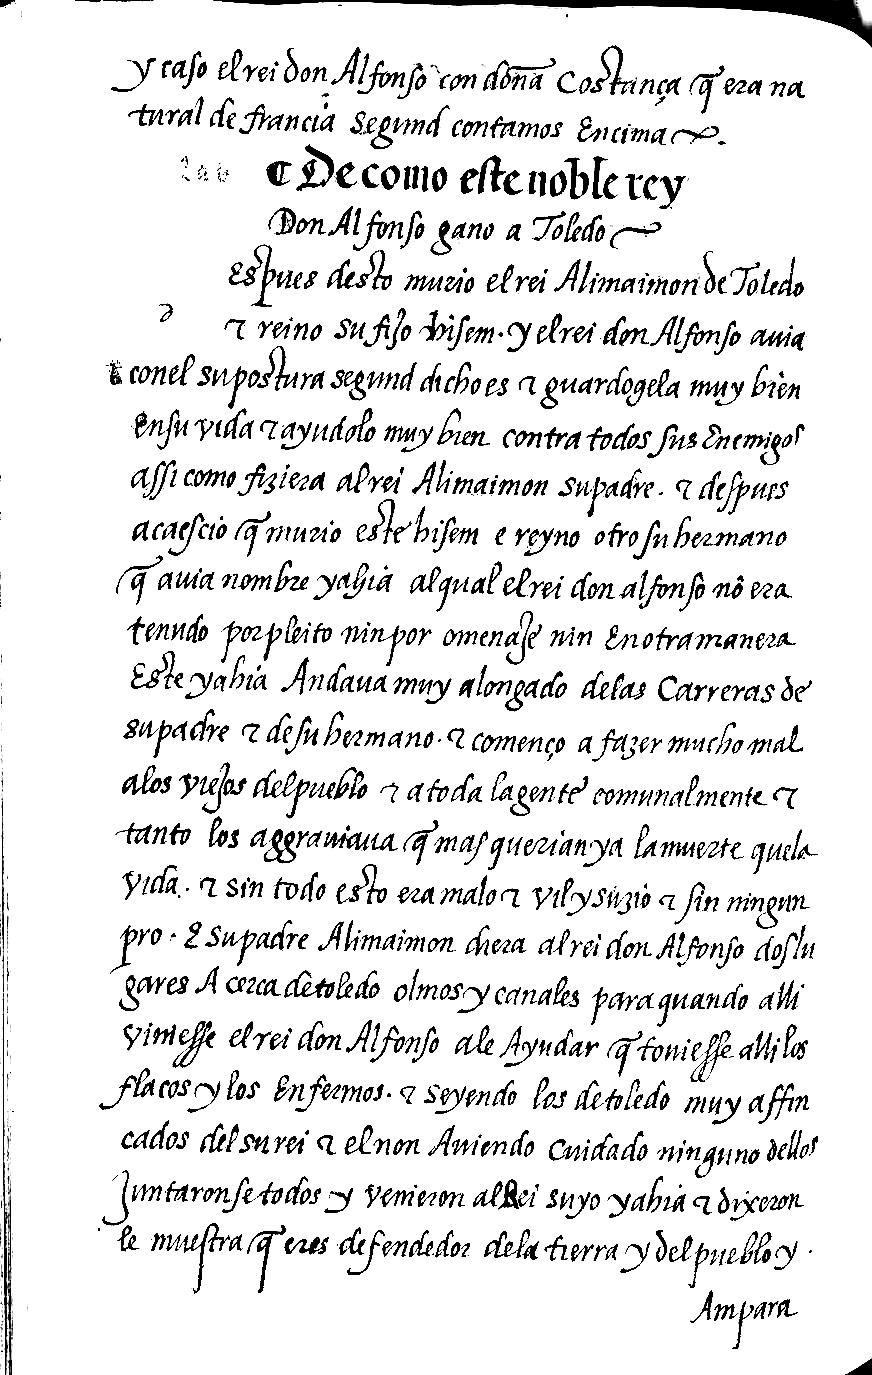 y caso el rei don Alfonso con doña Costança q̃ era na
tural de francia segund contamos Encima.
¶ De como este noble rey
Don Alfonso gano a Toledo
Espues desto murio el rei Alimaimon de Toledo
d
⁊ reino su fijo hisem. y el rei don Alfonso auia
conel supostura segund dicho es ⁊ guardogela muy bien
Ensu vida ⁊ ayudolo muy bien contra todos sus Enemigos
assi como fiziera al rei Alimaimon supadre. ⁊ despues
acaescio q̃ murio este hisem e reyno otro su hermano
q̃ auia nombre yahia alqual el rei don alfonso nō era
tenudo por pleito nin por omenaje nin En otra manera
Este yahia Andaua muy alongado delas Carreras de
supadre ⁊ desu hermano. ⁊ començo a fazer mucho mal
alos viejos del pueblo ⁊ a toda lagente comunalmente ⁊
tanto los aggrauiaua q̃ mas querian ya la muerte quela
vida. ⁊ sin todo esto era malo ⁊ vil y suzio ⁊ sin ningun
pro. E supadre Alimaimon diera al rei don Alfonso dos lu
gares A cerca de toledo olmos y canales para quando alli
viniesse el rei don Alfonso ale Ayudar q̃ touiesse alli los
flacos y los Enfermos. ⁊ seyendo los de toledo muy affin
cados del su rei ⁊ el non Auiendo Cuidado ninguno dellos
Juntaronse todos y venieron al Rei suyo yahia ⁊ dixeron
le muestra q̃ eres defendedor dela tierra y del pueblo y
Ampara